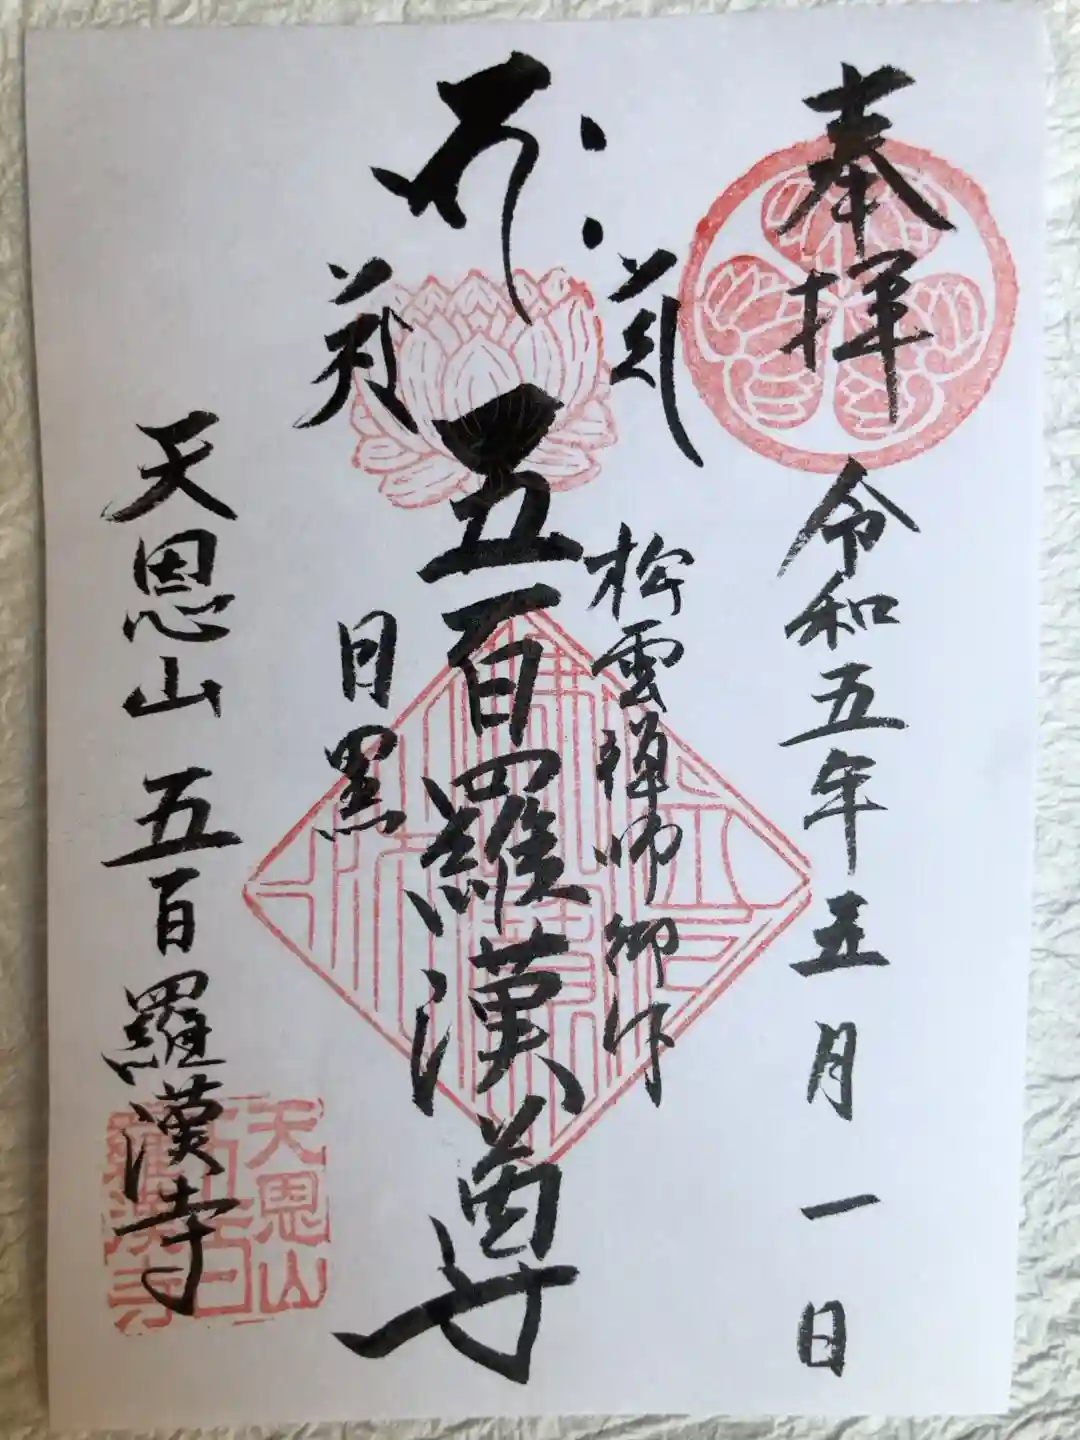 奉拝
令和五年五月一日
松雲禅師御作
五百羅漢尊
目黒
天恩山 五百羅漢寺
天恩山
五百
羅漢寺